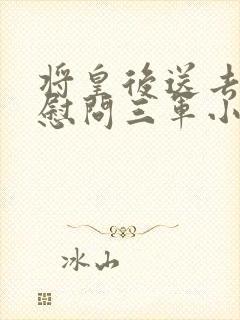 将皇後送去
慰問三軍小
冰山